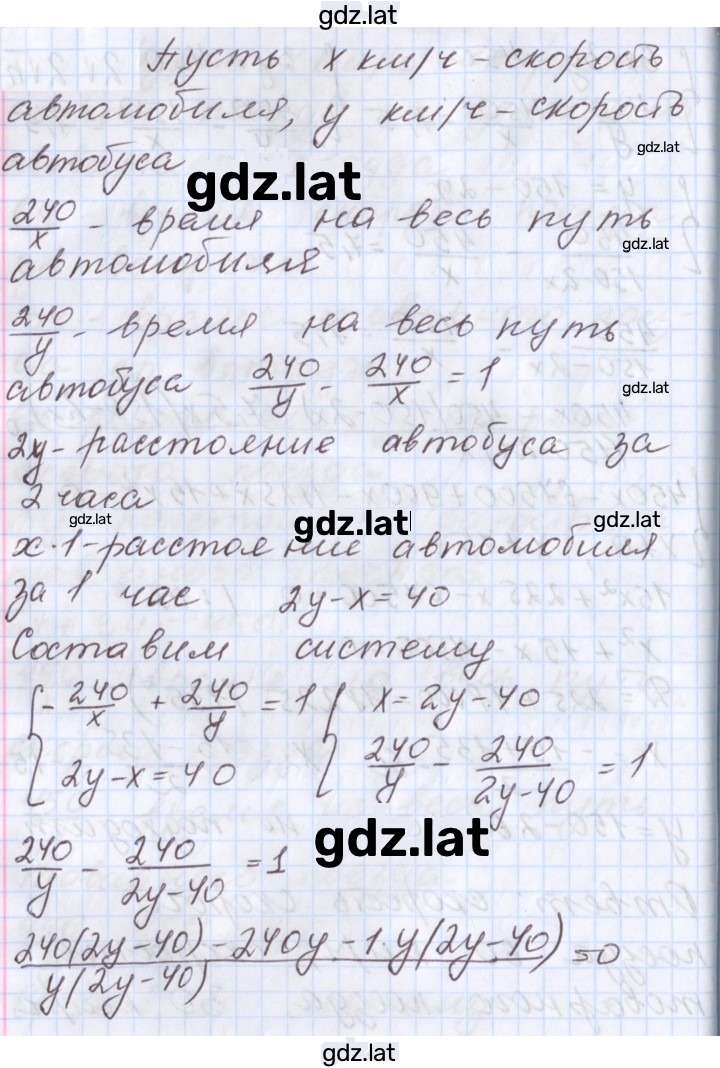 gdz.lat
Пусть x км/ч - скорость
автомобиля, y км/ч - скорость
gdz.lat
автобуса
gdz.lat
240/x - время на весь путь
gdz.lat
автомобиля
240/y - время на весь путь
автобуса 240/y - 240/x = 1
gdz.lat
2y - расстояние автобуса за
2 часа
gdz.lat gdz.lat gdz.lat
x·1 - расстояние автомобиля
за 1 час. 2y-x=40
Составим систему
{ -240/x + 240/y = 1 { x=2y-40
{ 2y-x=40 { 240/y - 240/(2y-40) = 1
gdz.lat
240/y - 240/(2y-40) = 1
(240(2y-40) - 240y - 1·y(2y-40))/(y(2y-40)) = 0
gdz.lat